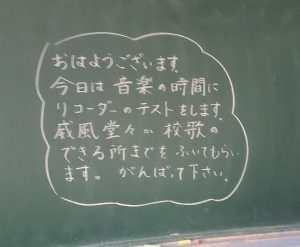 おはようございます。
今日は 音楽の時間に
リコーダーのテストをします。
威風堂々か 校歌の
できる所までを ふいてもらい
ます。 がんばって下さい。